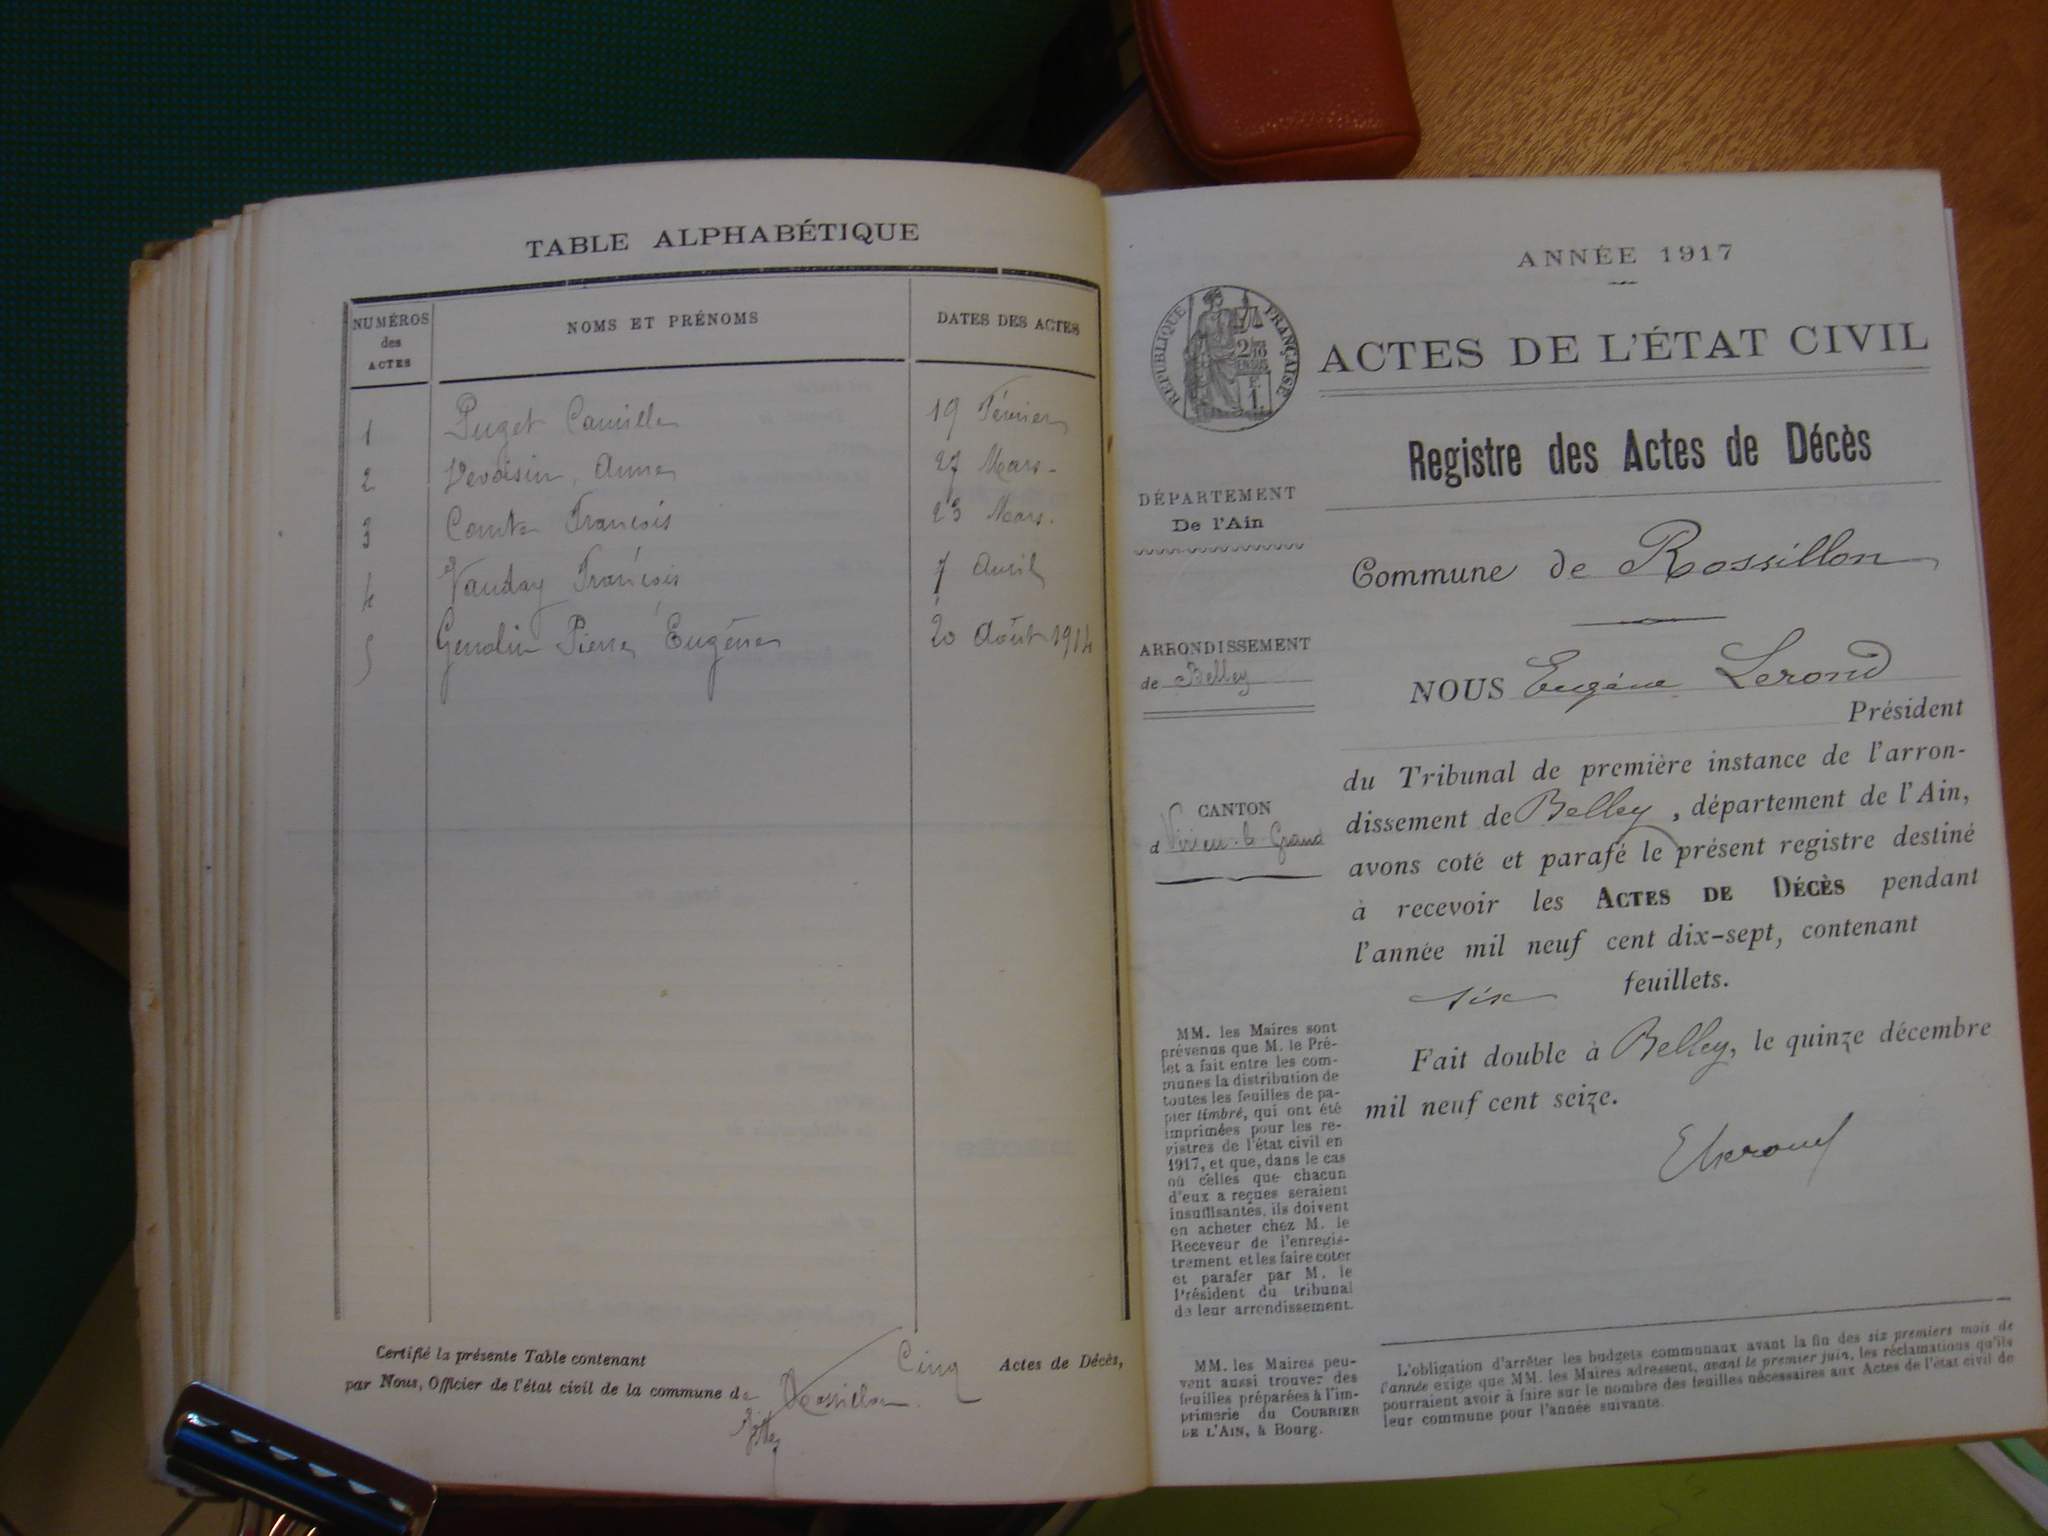 TABLE ALPHABÉTIQUE
NUMÉROS
des
ACTES
NOMS ET PRÉNOMS
DATES DES ACTES
1 Puget Camille 19 Février
2 Devoisin, Anna 27 Mars
3 Comte François 23 Mars.
4 Vauday François 7 Avril
5 Pierre Eugène 20 Août 1914
Certifié la présente Table contenant Cinq Actes de Décès,
par Nous, Officier de l'état civil de la commune de Rossillon.
ANNÉE 1917
RÉPUBLIQUE FRANÇAISE
2/10
EN SUS
F.
1.
ACTES DE L'ÉTAT CIVIL
Registre des Actes de Décès
DÉPARTEMENT
De l'Ain
Commune de Rossillon
ARRONDISSEMENT
de Belley
CANTON
d Virieu-le-Grand
NOUS Eugène Lerond
Président
du Tribunal de première instance de l'arron-
dissement de Belley, département de l'Ain,
avons coté et parafé le présent registre destiné
à recevoir les ACTES DE DÉCÈS pendant
l'année mil neuf cent dix-sept, contenant
six feuillets.
Fait double à Belley, le quinze décembre
mil neuf cent seize.
ELerond
MM. les Maires sont
prévenus que M. le Pré-
fet a fait entre les com-
munes la distribution de
toutes les feuilles de pa-
pier timbré, qui ont été
imprimées pour les re-
gistres de l'état civil en
1917, et que, dans le cas
où celles que chacun
d'eux a reçues seraient
insuffisantes, ils doivent
en acheter chez M. le
Receveur de l'enregis-
trement et les faire coter
et parafer par M. le
Président du tribunal
de leur arrondissement.
MM. les Maires peu-
vent aussi trouver des
feuilles préparées à l'im-
primerie du COURRIER
DE L'AIN, à Bourg.
L'obligation d'arrêter les budgets communaux avant la fin des six premiers mois de
l'année exige que MM. les Maires adressent, avant le premier juin, les réclamations qu'ils
pourraient avoir à faire sur le nombre des feuilles nécessaires aux Actes de l'état civil de
leur commune pour l'année suivante.